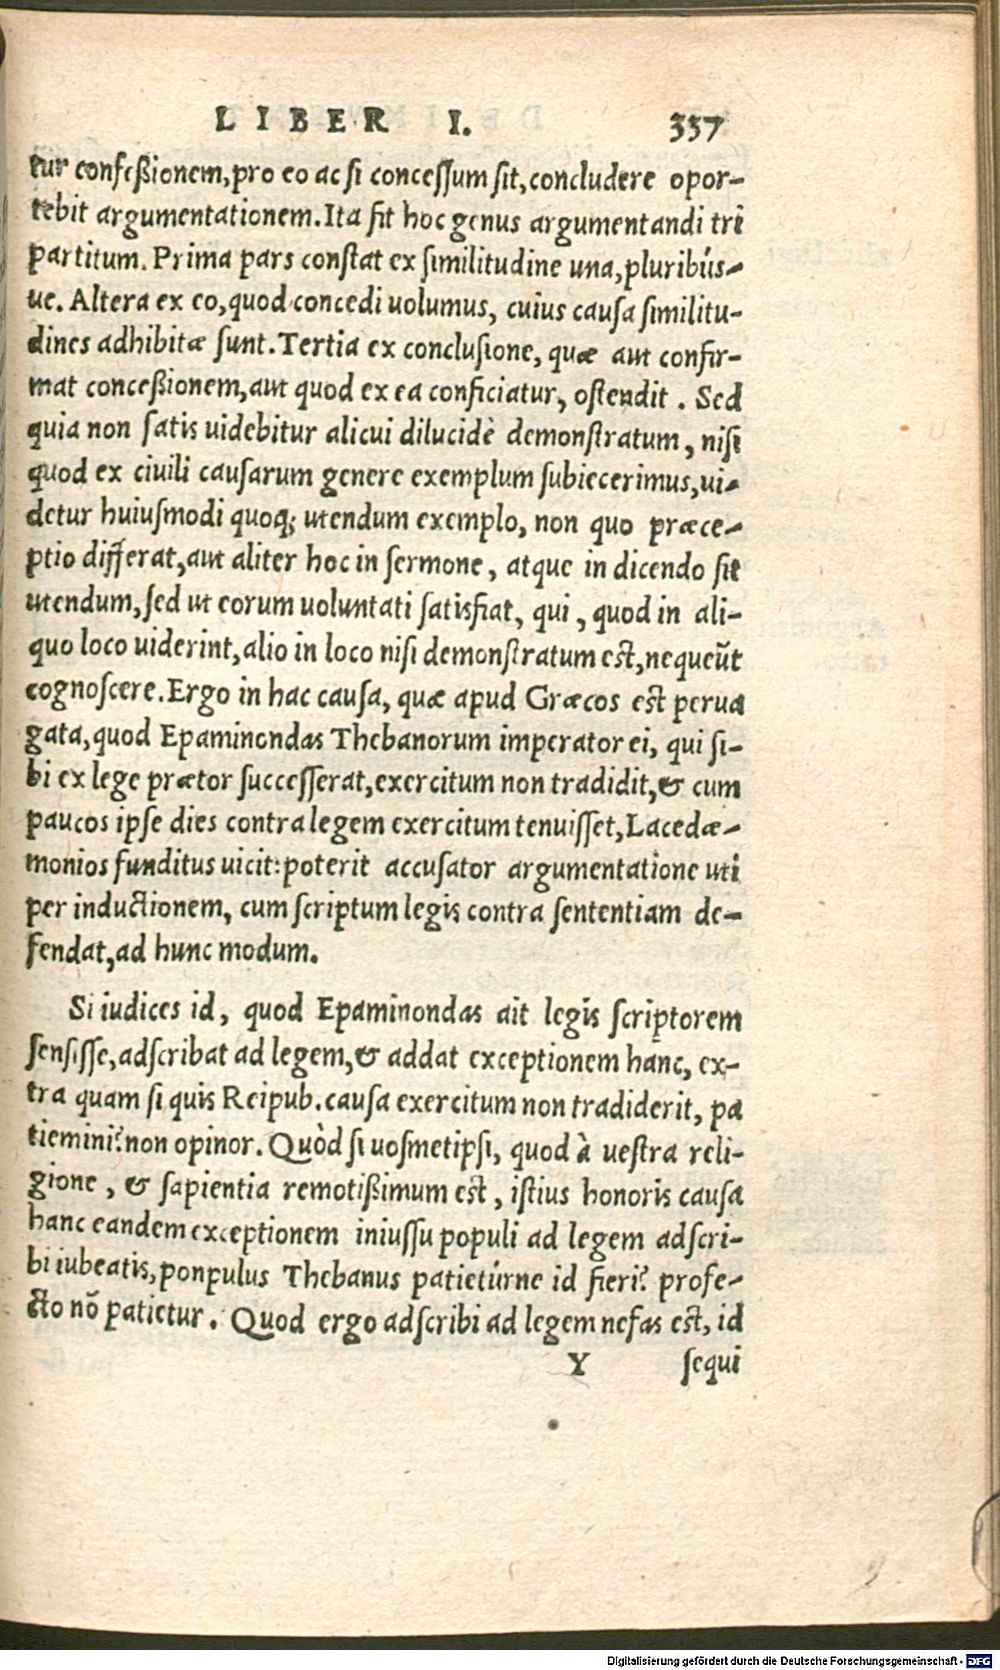 LIBER I. 337
tur confeßionem, pro eo ac si concessum sit, concludere opor-
tebit argumentationem. Ita fit hoc genus argumentandi tri
partitum. Prima pars constat ex similitudine una, pluribús-
ue. Altera ex eo, quod concedi uolumus, cuius causa similitu-
dines adhibitæ sunt. Tertia ex conclusione, quæ aut confir-
mat conceßionem, aut quod ex ea conficiatur, ostendit. Sed
quia non satis uidebitur alicui dilucidè demonstratum, nisi
quod ex ciuili causarum genere exemplum subiecerimus, ui-
detur huiusmodi quoq; utendum exemplo, non quo præce-
ptio differat, aut aliter hoc in sermone, atque in dicendo sit
utendum, sed ut eorum uoluntati satisfiat, qui, quod in ali-
quo loco uiderint, alio in loco nisi demonstratum est, nequeũt
cognoscere. Ergo in hac causa, quæ apud Græcos est perua
gata, quod Epaminondas Thebanorum imperator ei, qui si-
bi ex lege prætor successerat, exercitum non tradidit, & cum
paucos ipse dies contra legem exercitum tenuisset, Lacedæ-
monios funditus uicit: poterit accusator argumentatione uti
per inductionem, cum scriptum legis contra sententiam de-
fendat, ad hunc modum.
Si iudices id, quod Epaminondas ait legis scriptorem
sensisse, adscribat ad legem, & addat exceptionem hanc, ex-
tra quam si quis Reipub. causa exercitum non tradiderit, pa
tiemini? non opinor. Quòd si uosmetipsi, quod à uestra reli-
gione, & sapientia remotißimum est, istius honoris causa
hanc eandem exceptionem iniussu populi ad legem adscri-
bi iubeatis, ponpulus Thebanus patietúrne id fieri? profe-
cto nõ patietur. Quod ergo adscribi ad legem nefas est, id
Y sequi
Digitalisierung gefördert durch die Deutsche Forschungsgemeinschaft - DFG